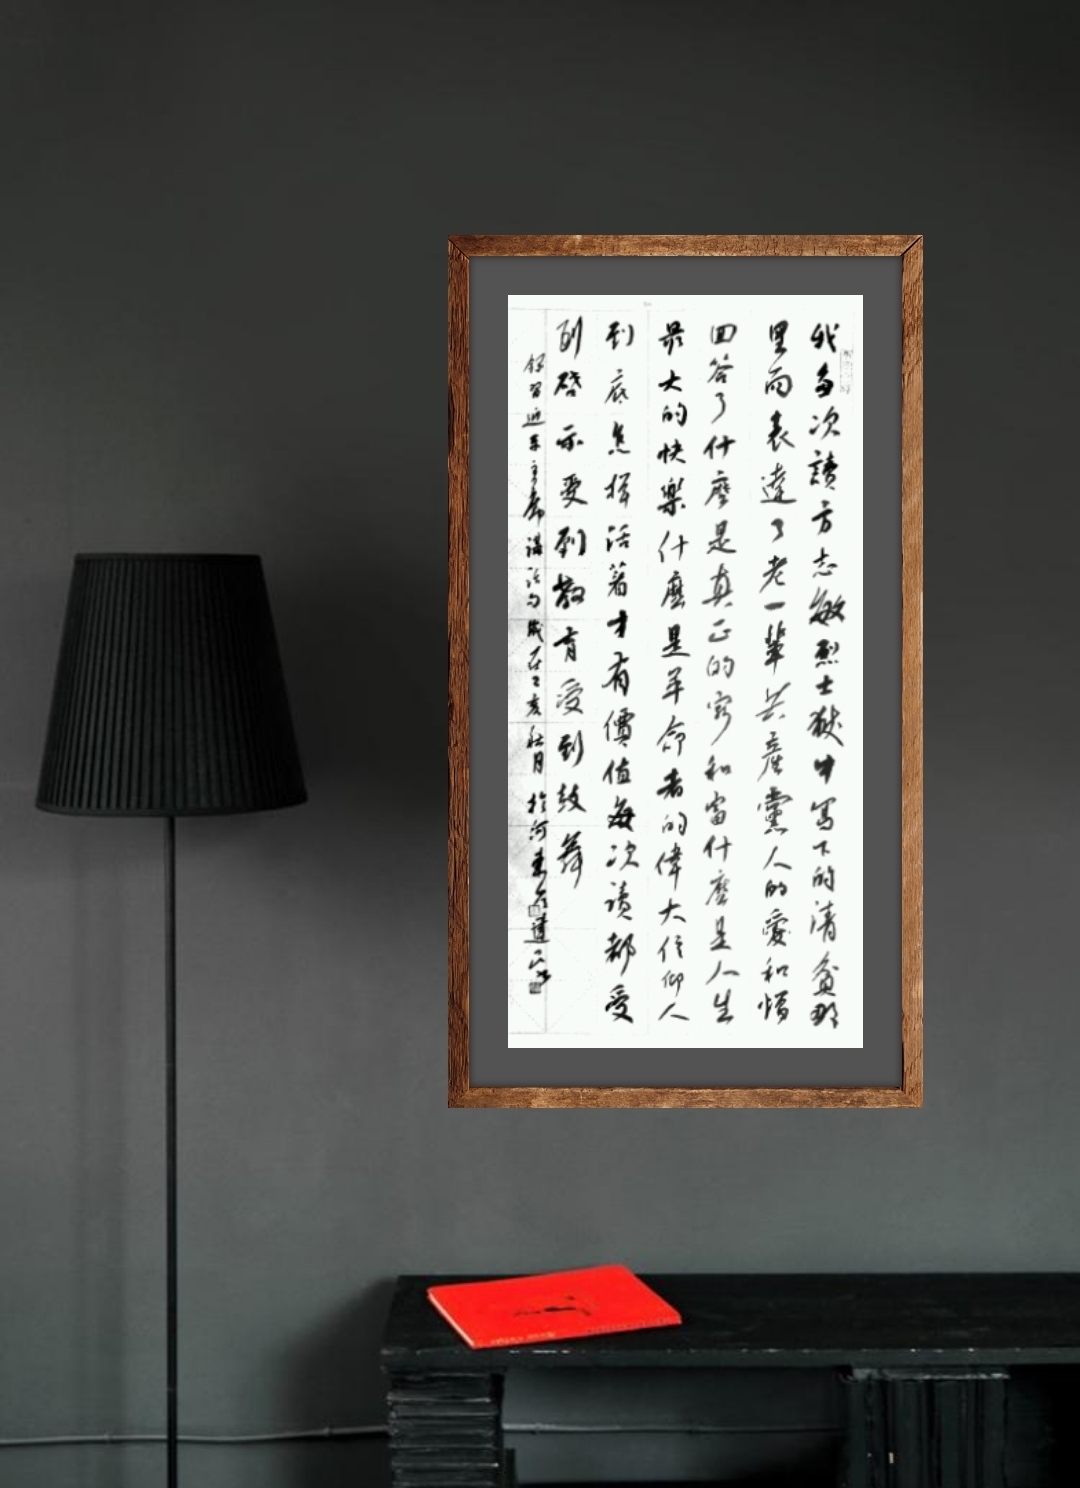 我多次讀方志敏烈士獄中寫下的清貧那
里面表達了老一輩共產黨人的愛和憎
回答了什麼是真正的窮和富什麼是人生
最大的快樂什麼是革命者的偉大信仰人
到底怎樣活著才有價值每次读都受
到啓示受到教育受到鼓舞
錄習近平主席講話句歲在己亥秋月於河東